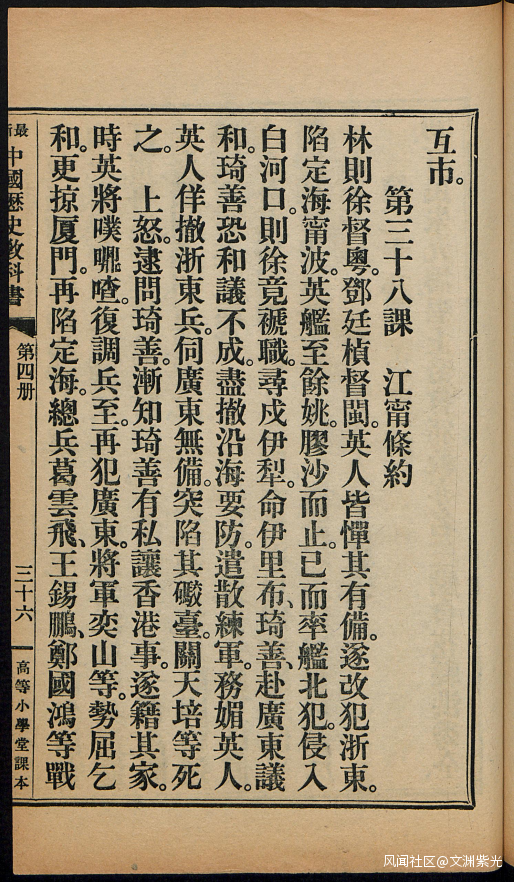 互市。
第三十八課　江甯條約
林則徐督粵。鄧廷楨督閩。英人皆憚其有備。遂改犯浙東。
陷定海甯波。英艦至餘姚。膠沙而止。已而率艦北犯。侵入
白河口。則徐竟褫職。尋戍伊犁。命伊里布、琦善、赴廣東議
和。琦善恐和議不成。盡撤沿海要防。遣散練軍。務媚英人。
英人佯撤浙東兵。伺廣東無備。突陷其礮臺。關天培等死
之。　上怒。逮問琦善。漸知琦善有私讓香港事。遂籍其家。
時英將噗嚦喳。復調兵至。再犯廣東。將軍奕山等。勢屈乞
和。更掠厦門。再陷定海。總兵葛雲飛、王錫鵬、鄭國鴻等戰
最新中國歷史教科書　第四册　三十六　高等小學堂課本
风闻社区@文洲紫光